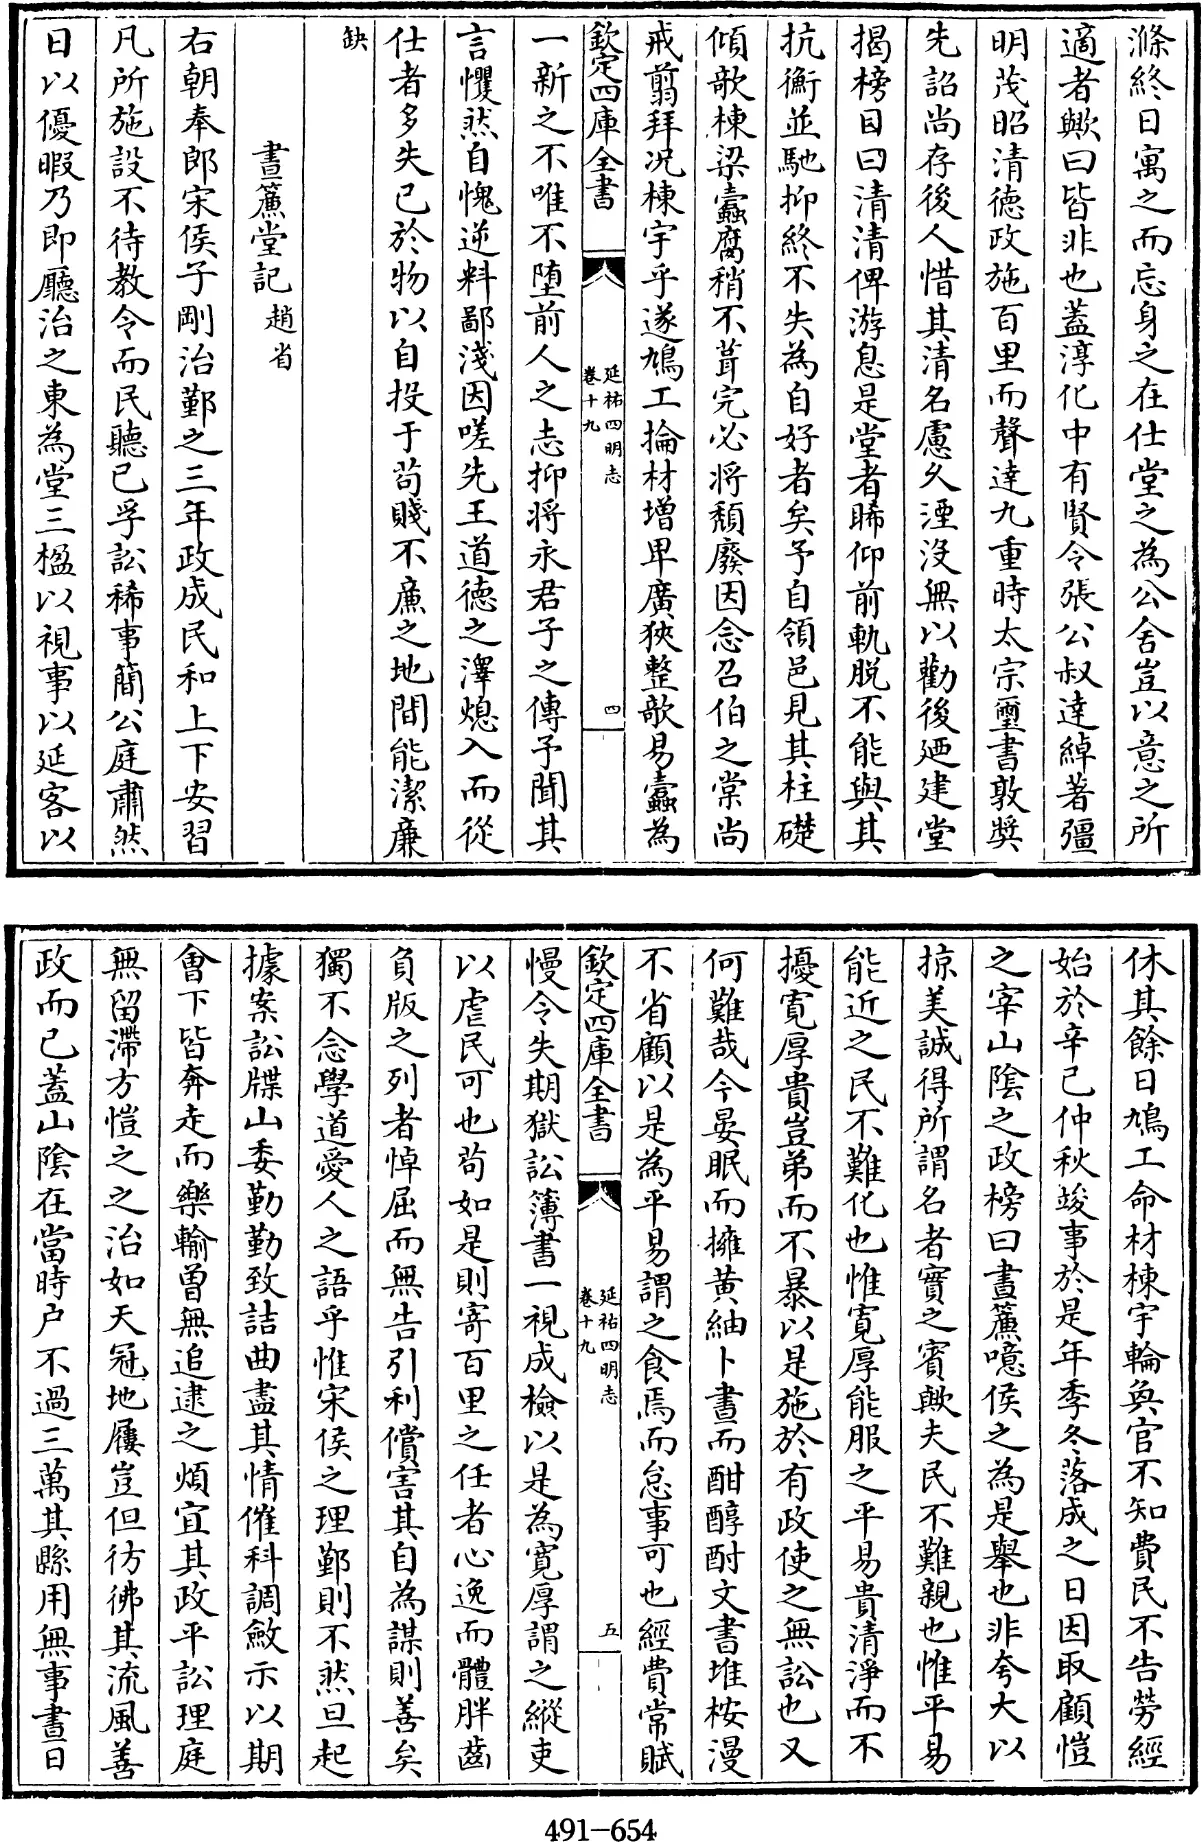 滌終日寓之而忘身之在仕堂之為公舍豈以意之所
適者歟曰皆非也蓋淳化中有賢令張公叔達綽著彊
明茂昭清德政施百里而聲達九重時太宗璽書敦奬
先詔尚存後人惜其清名慮久湮沒無以勸後廼建堂
揭榜目曰清清俾游息是堂者睎仰前軌脱不能與其
抗衡並馳抑終不失為自好者矣予自領邑見其柱礎
傾欹棟梁蠧腐稍不葺完必將頹廢因念召伯之棠尚
戒翦拜况棟宇乎遂鳩工掄材增卑廣狹整欹易蠧為
欽定四庫全書
延祐四明志
卷十九
四
一新之不唯不墮前人之志抑將永君子之傳予聞其
言懼然自愧逆料鄙淺因嗟先王道德之澤熄入而從
仕者多失已於物以自投于苟賤不亷之地間能潔亷
缺
晝簾堂記 趙省
右朝奉郎宋侯子剛治鄞之三年政成民和上下安習
凡所施設不待教令而民聽已孚訟稀事簡公庭肅然
日以優暇乃即廳治之東為堂三楹以視事以延客以
休其餘日鳩工命材棟宇輪奐官不知費民不告勞經
始於辛已仲秋竣事於是年季冬落成之日因取顧愷
之宰山隂之政榜曰晝簾噫侯之為是舉也非夸大以
掠美誠得所謂名者實之賓歟夫民不難親也惟平易
能近之民不難化也惟寛厚能服之平易貴清淨而不
擾寛厚貴豈弟而不暴以是施於有政使之無訟也又
何難哉今晏眠而擁黄紬卜晝而酣醇酎文書堆桉漫
不省顧以是為平易謂之食焉而怠事可也經費常賦
欽定四庫全書
延祐四明志
卷十九
五
慢令失期獄訟簿書一視成檢以是為寛厚謂之縱吏
以虐民可也苟如是則寄百里之任者心逸而體胖齒
負版之列者悼屈而無告引利償害其自為謀則善矣
獨不念學道愛人之語乎惟宋侯之理鄞則不然旦起
據案訟牒山委勤勤致詰曲盡其情催科調斂示以期
會下皆奔走而樂輸曾無追逮之煩宜其政平訟理庭
無留滯方愷之之治如天冠地屨豈但彷彿其流風善
政而已蓋山隂在當時户不過三萬其縣用無事晝日
491-654